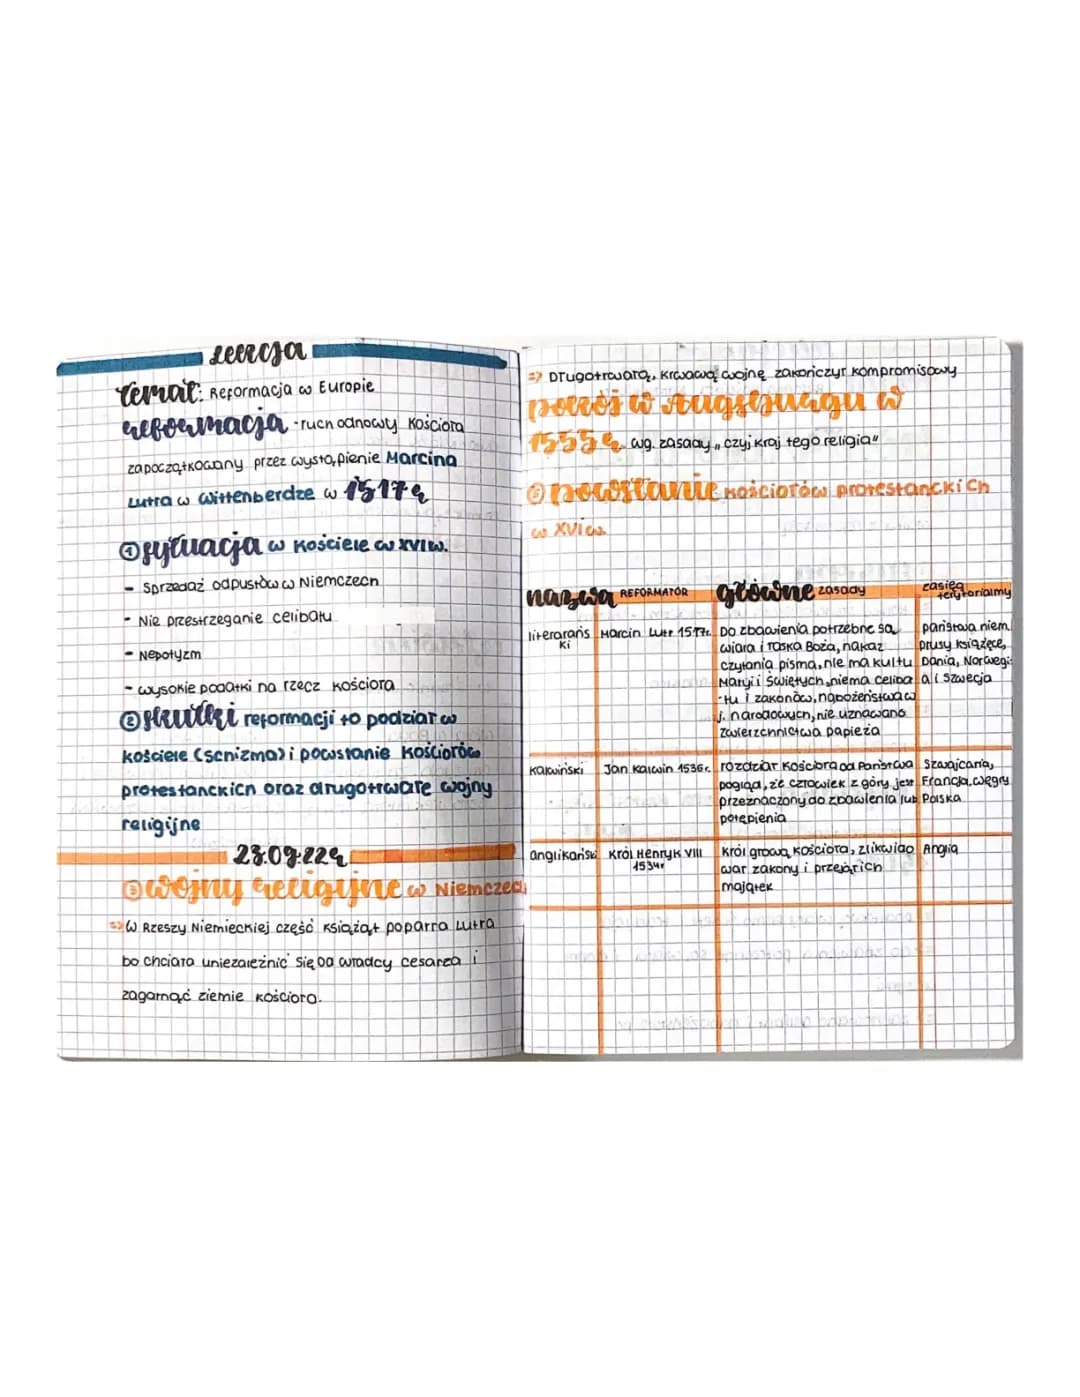 Lekcja
temat: Reformacja w Europie
reformacja - ruch odnowy Kościoła
zapoczątkowany przez wystąpienie Marcina
Lutra w Wittenberdze w 1517r
① sytuacja w Kościele w XVI w.
- Sprzedaż odpustów w Niemczech
- Nie przestrzeganie celibatu
- Nepotyzm
- wysokie podatki na rzecz kościoła
② skutki reformacji to podział w
kościele (schizma) i powstanie Kościołów
protestanckich oraz długotrwałe wojny
religijne
23.09.22r
③ wojny religijne w Niemczech
=> W Rzeszy Niemieckiej część książąt poparła Lutra
bo chciała uniezależnić się od władcy cesarza i
zagarnąć ziemie kościoła.
=> Długotrwałą, krwawą wojnę zakończył kompromisowy
pokój w Augsburgu w
1555r wg. zasady „czyj kraj tego religia"
powstanie kościołów protestanckich
w XVI w.
nazwa REFORMATOR główne zasady zasięg
terytorialny
literarańs
ki
Marcin Lutr 1517r.
Do zbawienia potrzebne są
wiara i łaska Boża, nakaz
czytania pisma, nie ma kultu
Maryi i świętych, niema celiba
-tu i zakonów, nabożeństwa w
j. narodowych, nie uznawano
zwierzchnictwa papieża
państwa niem.
prusy książęce,
Dania, Norwegi-
a i Szwecja
kalwiński
Jan Kalwin 1536r.
rozdział Kościoła od Państwa
pogląd, że człowiek z góry jest
przeznaczony do zbawienia lub
potępienia
Szwajcaria,
Francja, węgry
Polska
anglikański
Król Henryk VIII
1534r
Król głową kościoła, zlikwido
wał zakony i przejął ich
majątek
Anglia